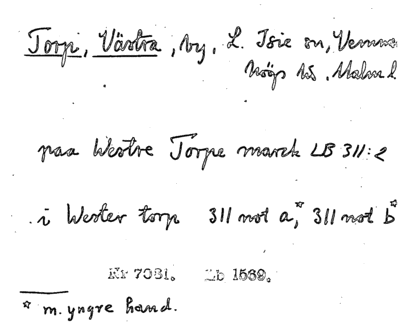 Torp, Västra, by, L. Isie sn, Vemme
högs hd, Malm l
paa Westre Torpe marck LB 311:2
i Wester torp 311 not a,* 311 not b*
Kr 7031. Lb 1569.
* m. yngre hand.